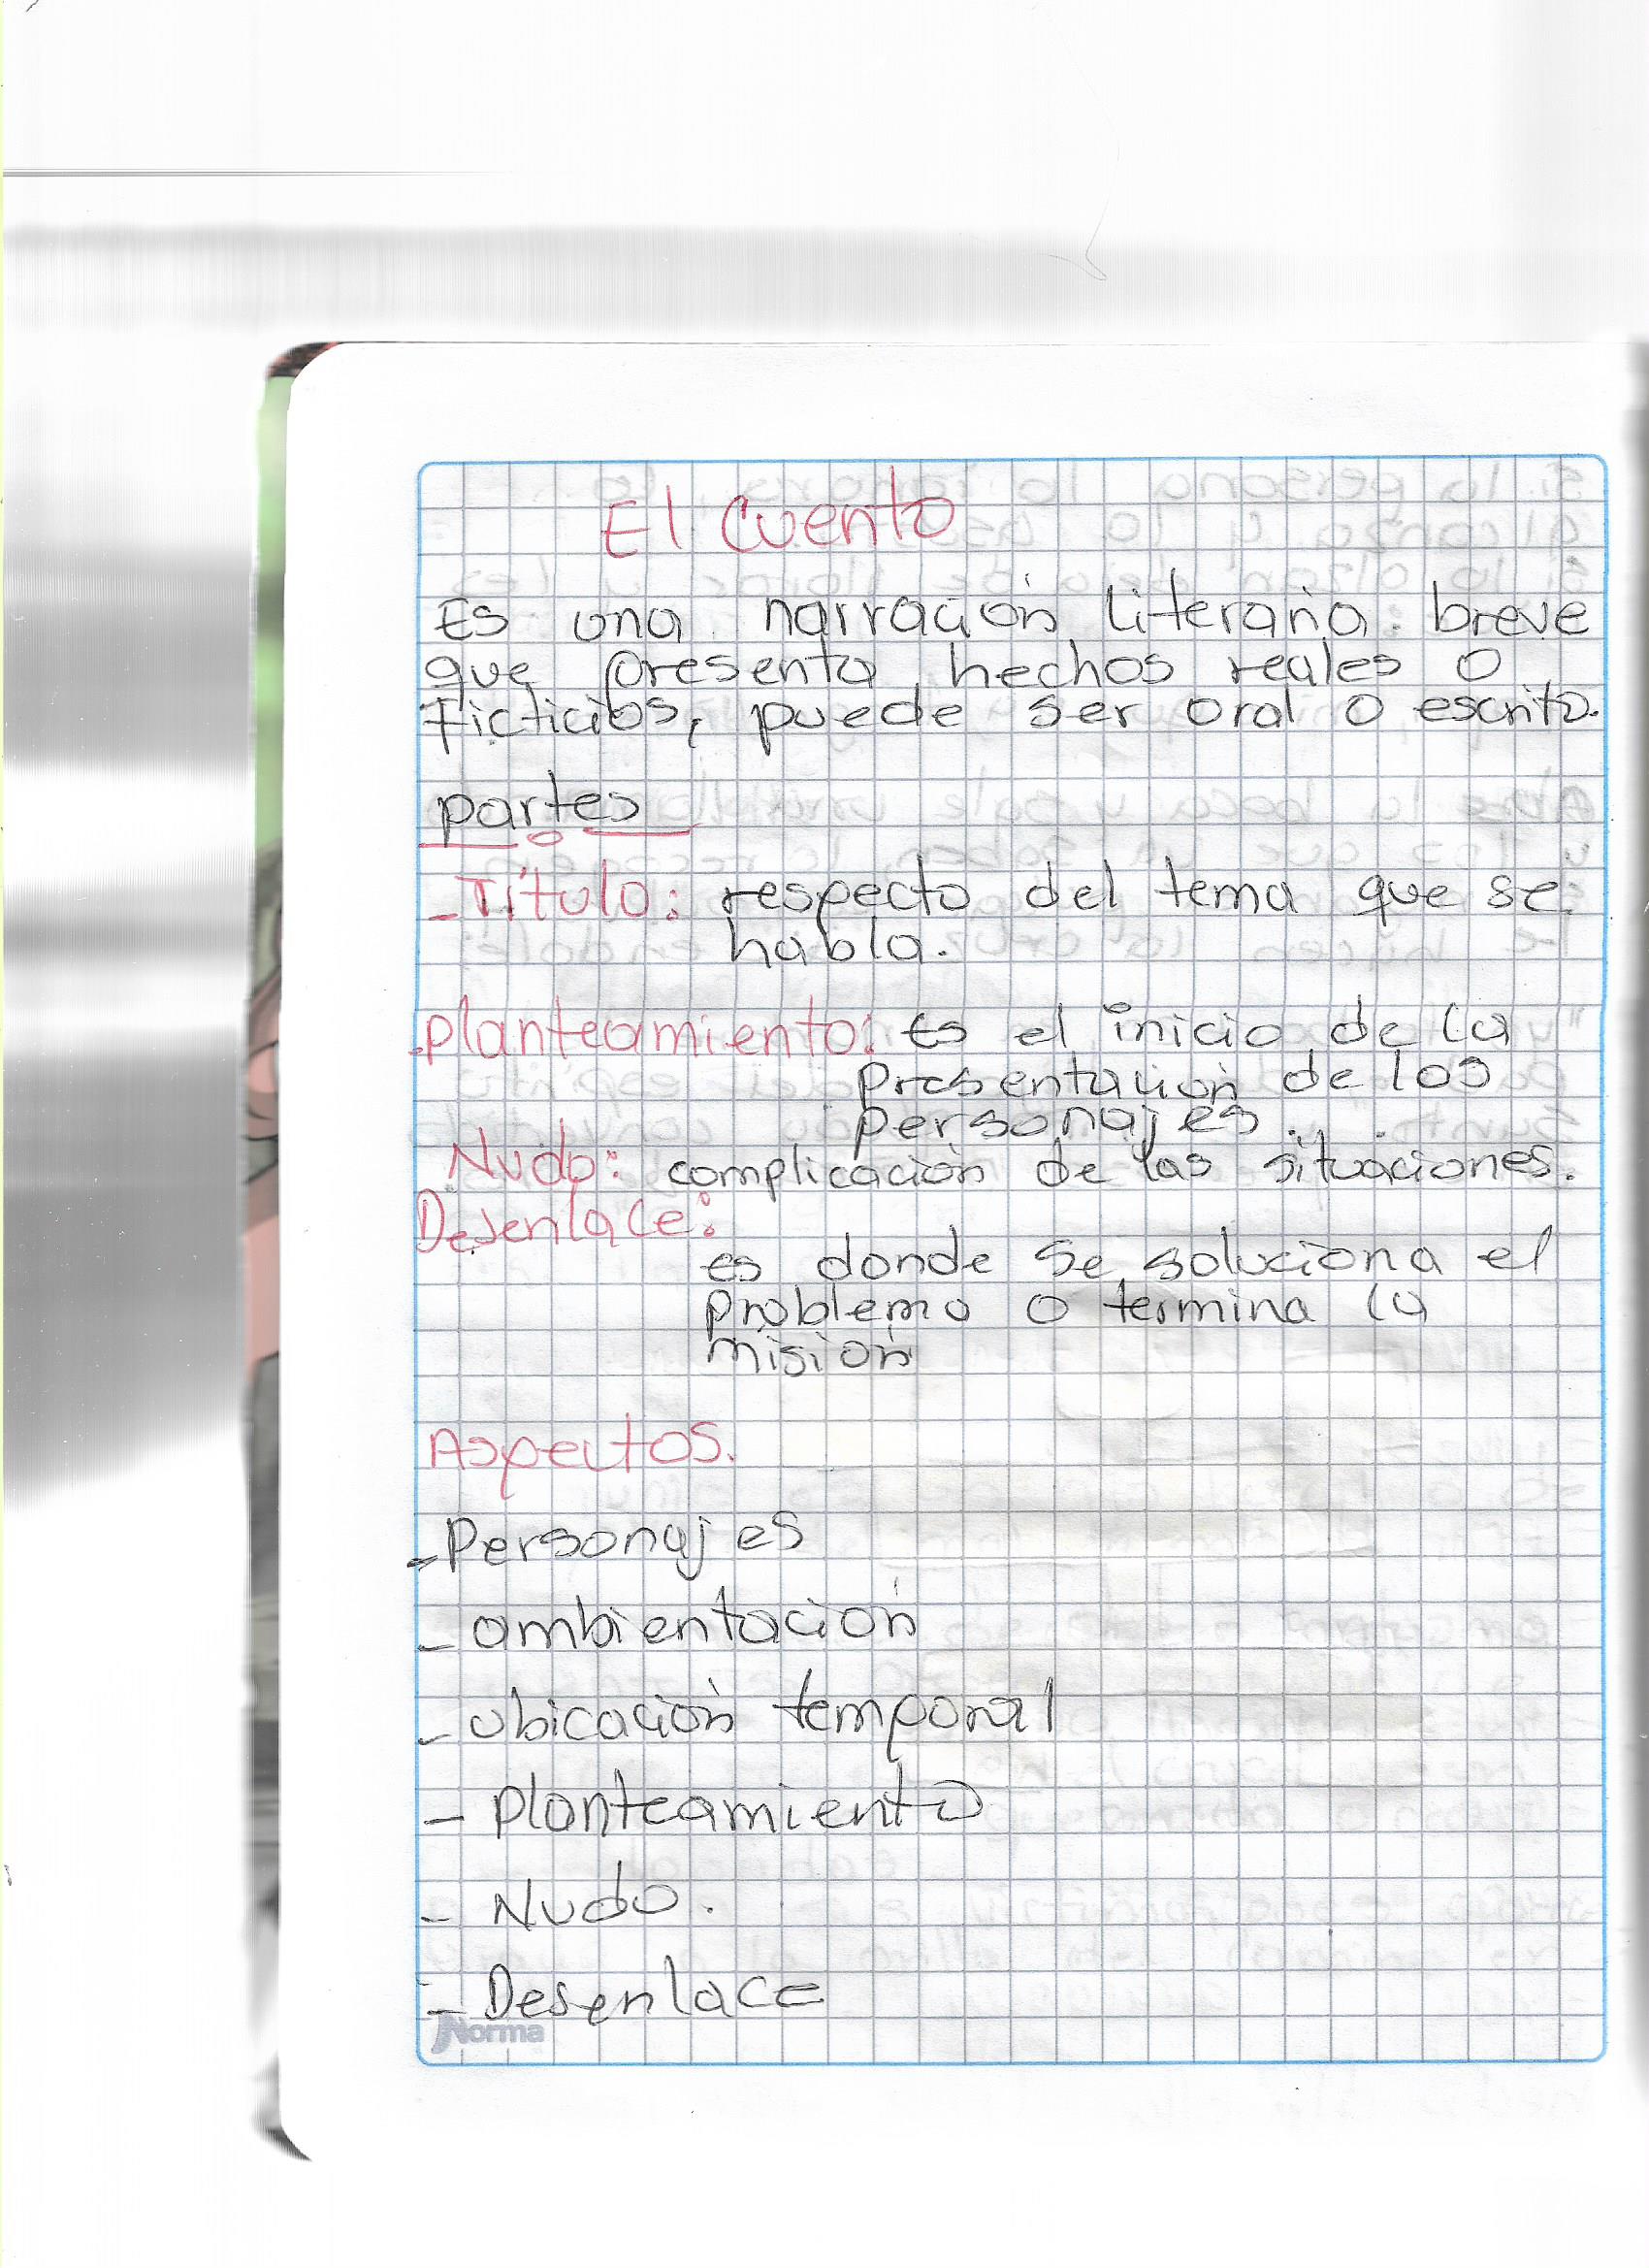 El Cuento
Es una narración literaria breve
que presenta hechos reales o
ficticios, puede ser oral o escrito.
partes
- Título: respecto del tema que se
habla.
- Planteamiento: Es el inicio de la
Presentación de los
personajes.
Nudo: complicación de las situaciones.
Desenlace:
es donde se soluciona el
problema o termina la
misión
Aspectos.
- Personajes
- ambientación
- ubicación temporal
- Planteamiento
- Nudo.
- Desenlace
Norma